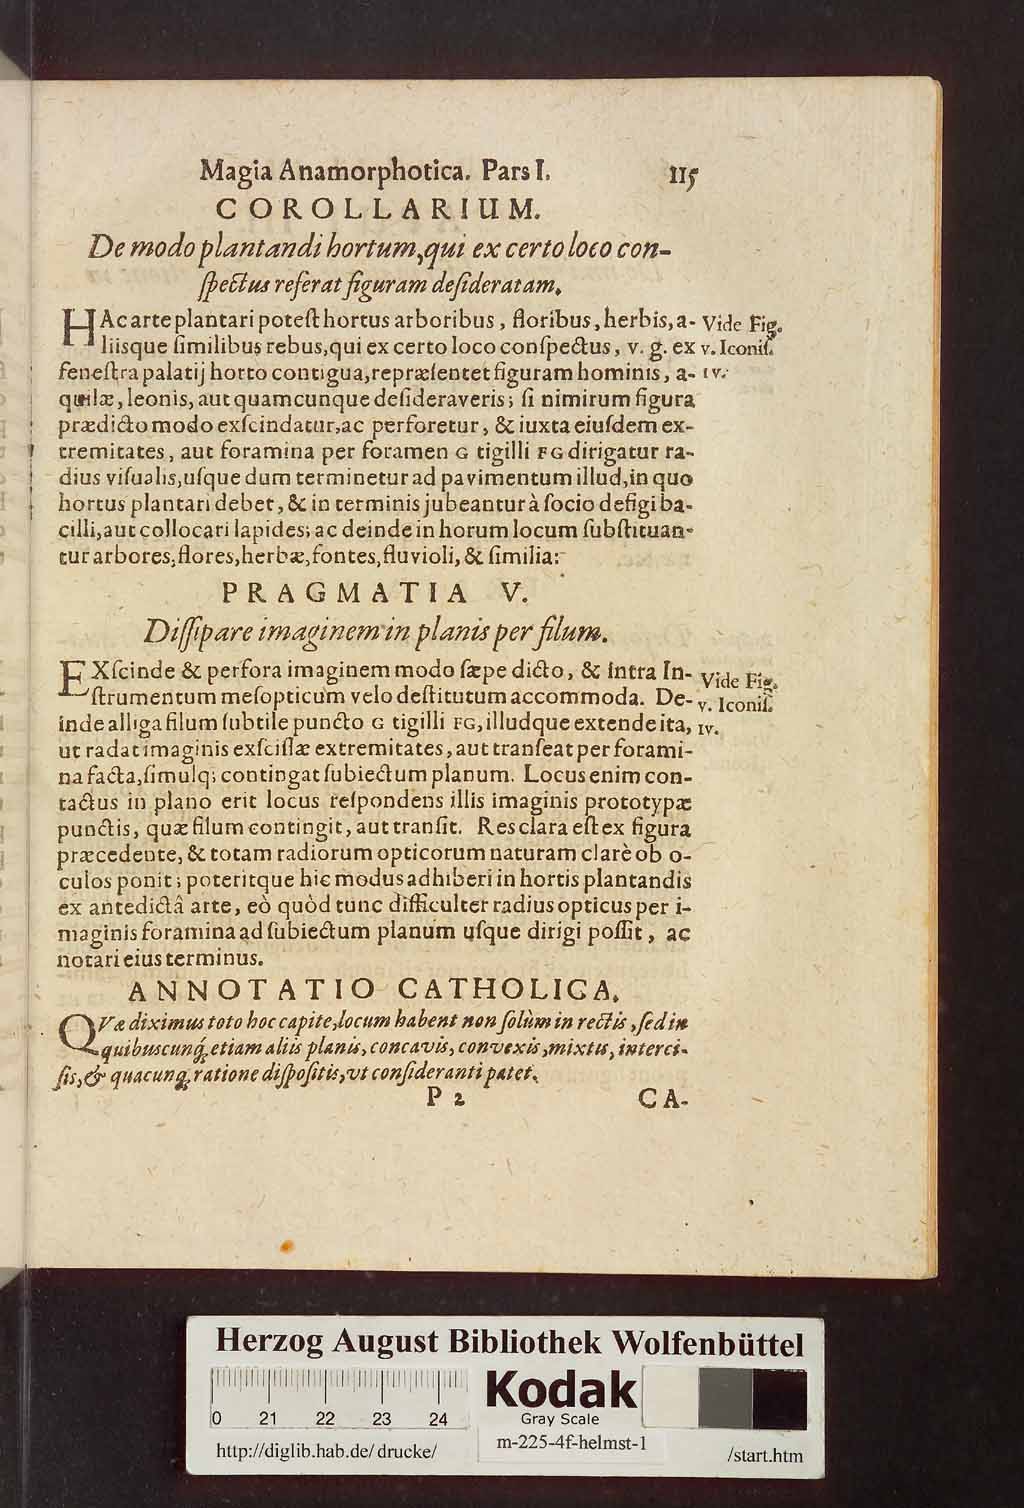 Magia Anamorphotica. Pars I. 115
COROLLARIUM.
De modo plantandi hortum, qui ex certo loco con-
ſpectus referat figuram deſideratam.
HAc arte plantari poteſt hortus arboribus, floribus, herbis, a-
liisque ſimilibus rebus, qui ex certo loco conſpectus, v. g. ex
feneſtra palatij horto contigua, repræſentet figuram hominis, a-
quilæ, leonis, aut quamcunque deſideraveris; ſi nimirum figura
prædicto modo exſcindatur, ac perforetur, & iuxta eiuſdem ex-
tremitates, aut foramina per foramen G tigilli FG dirigatur ra-
dius viſualis, uſque dum terminetur ad pavimentum illud, in quo
hortus plantari debet, & in terminis jubeantur à ſocio defigi ba-
cilli, aut collocari lapides; ac deinde in horum locum ſubſtituan-
tur arbores, flores, herbæ, fontes, fluvioli, & ſimilia:
Vide Fig.
v. Iconiſ.
IV.
PRAGMATIA V.
Diſſipare imaginem in planis per filum.
EXſcinde & perfora imaginem modo ſæpe dicto, & intra In-
ſtrumentum meſopticum velo deſtitutum accommoda. De-
inde alliga filum ſubtile puncto G tigilli FG, illudque extende ita,
ut radat imaginis exſciſſæ extremitates, aut tranſeat per forami-
na facta, ſimulq; contingat ſubiectum planum. Locus enim con-
tactus in plano erit locus reſpondens illis imaginis prototypæ
punctis, quæ filum contingit, aut tranſit. Res clara eſt ex figura
præcedente, & totam radiorum opticorum naturam clarè ob o-
culos ponit; poteritque hic modus adhiberi in hortis plantandis
ex antedictâ arte, eò quòd tunc difficulter radius opticus per i-
maginis foramina ad ſubiectum planum uſque dirigi poſſit, ac
notari eius terminus.
Vide Fig.
v. Iconiſ.
IV.
ANNOTATIO CATHOLICA.
QVæ diximus toto hoc capite, locum habent non ſolùm in rectis, ſed in
quibuscunq; etiam aliis planis, concavis, convexis, mixtis, interci-
ſis, & quacunq; ratione diſpoſitis, vt conſideranti patet.
P 2 CA-
Herzog August Bibliothek Wolfenbüttel
0 21 22 23 24
Kodak
Gray Scale
http://diglib.hab.de/drucke/ m-225-4f-helmst-1 /start.htm